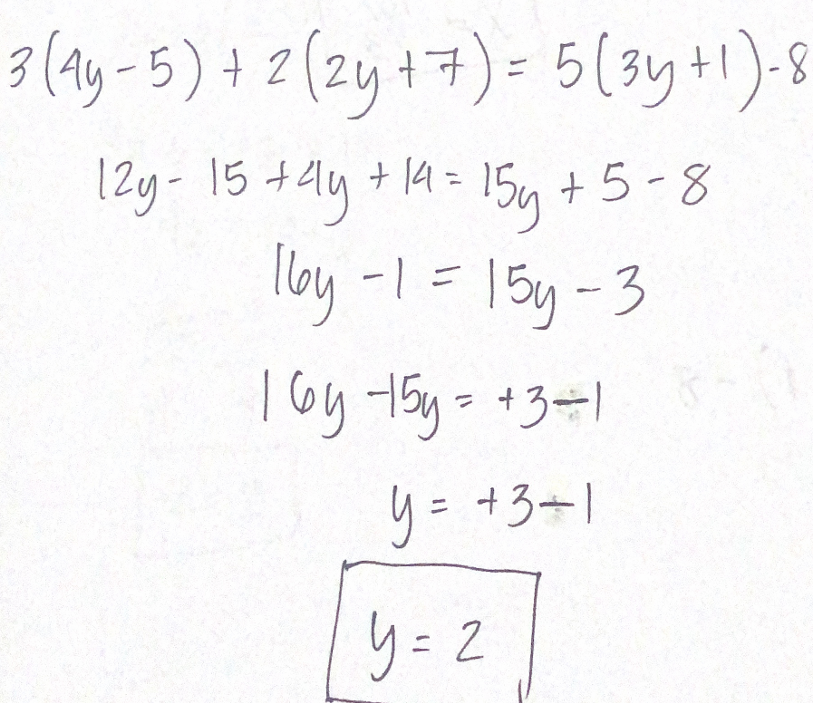 3(4y-5) + 2(2y+7) = 5(3y+1)-8
12y- 15 +4y + 14 = 15y + 5 - 8
16y -1 = 15y - 3
16y -15y = +3-1
y = +3-1
y = 2